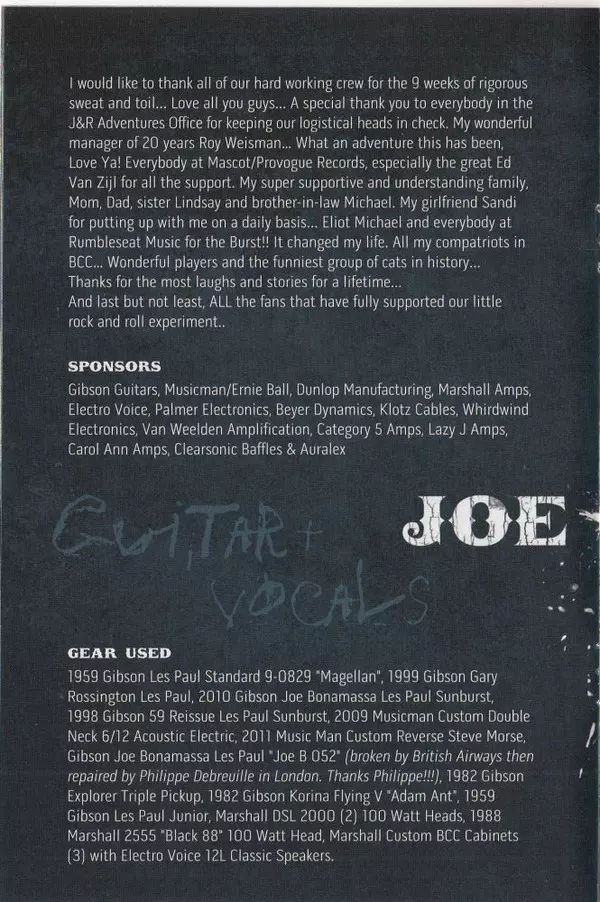 I would like to thank all of our hard working crew for the 9 weeks of rigorous
sweat and toil... Love all you guys... A special thank you to everybody in the
J&R Adventures Office for keeping our logistical heads in check. My wonderful
manager of 20 years Roy Weisman... What an adventure this has been,
Love Ya! Everybody at Mascot/Provogue Records, especially the great Ed
Van Zijl for all the support. My super supportive and understanding family,
Mom, Dad, sister Lindsay and brother-in-law Michael. My girlfriend Sandi
for putting up with me on a daily basis... Eliot Michael and everybody at
Rumbleseat Music for the Burst!! It changed my life. All my compatriots in
BCC... Wonderful players and the funniest group of cats in history...
Thanks for the most laughs and stories for a lifetime...
And last but not least, ALL the fans that have fully supported our little
rock and roll experiment..
SPONSORS
Gibson Guitars, Musicman/Ernie Ball, Dunlop Manufacturing, Marshall Amps,
Electro Voice, Palmer Electronics, Beyer Dynamics, Klotz Cables, Whirdwind
Electronics, Van Weelden Amplification, Category 5 Amps, Lazy J Amps,
Carol Ann Amps, Clearsonic Baffles & Auralex
GUiTAR +
VOCALS
JOE
GEAR USED
1959 Gibson Les Paul Standard 9-0829 "Magellan", 1999 Gibson Gary
Rossington Les Paul, 2010 Gibson Joe Bonamassa Les Paul Sunburst,
1998 Gibson 59 Reissue Les Paul Sunburst, 2009 Musicman Custom Double
Neck 6/12 Acoustic Electric, 2011 Music Man Custom Reverse Steve Morse,
Gibson Joe Bonamassa Les Paul "Joe B 052" (broken by British Airways then
repaired by Philippe Debreuille in London. Thanks Philippe!!!), 1982 Gibson
Explorer Triple Pickup, 1982 Gibson Korina Flying V "Adam Ant", 1959
Gibson Les Paul Junior, Marshall DSL 2000 (2) 100 Watt Heads, 1988
Marshall 2555 "Black 88" 100 Watt Head, Marshall Custom BCC Cabinets
(3) with Electro Voice 12L Classic Speakers.